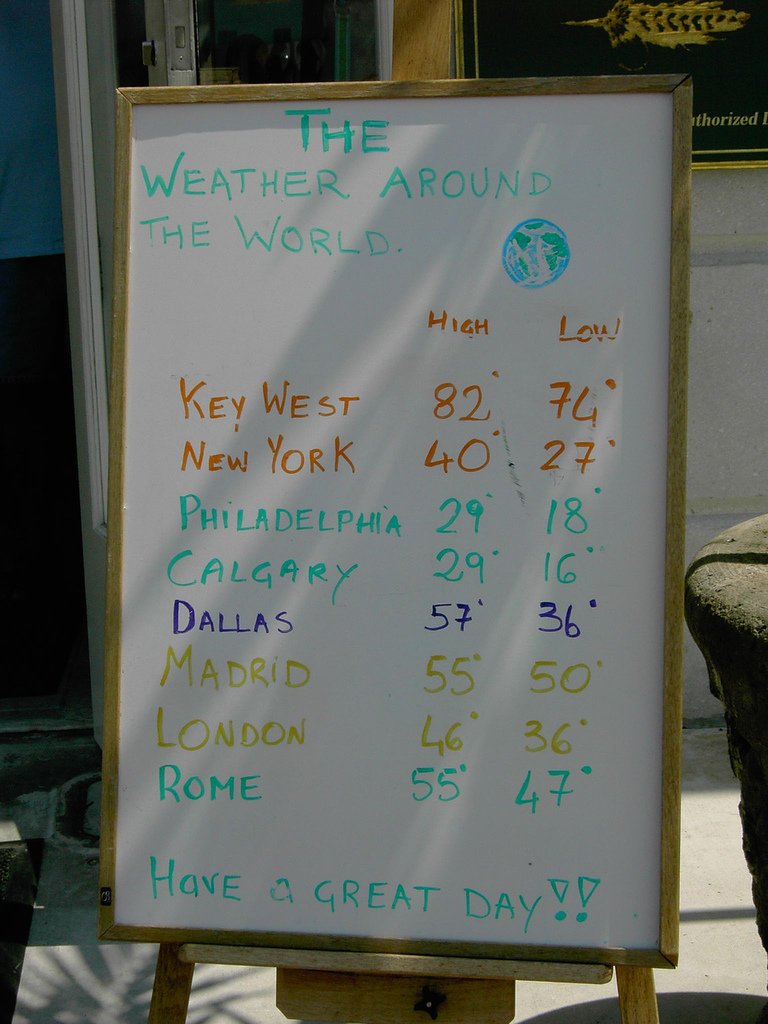 uthorized
THE
WEATHER AROUND
THE WORLD.
HIGH LOW
KEY WEST 82° 74°
NEW YORK 40° 27°
PHILADELPHIA 29° 18°
CALGARY 29° 16°
DALLAS 57° 36°
MADRID 55° 50°
LONDON 46° 36°
ROME 55° 47°
HAVE a GREAT DAY!!